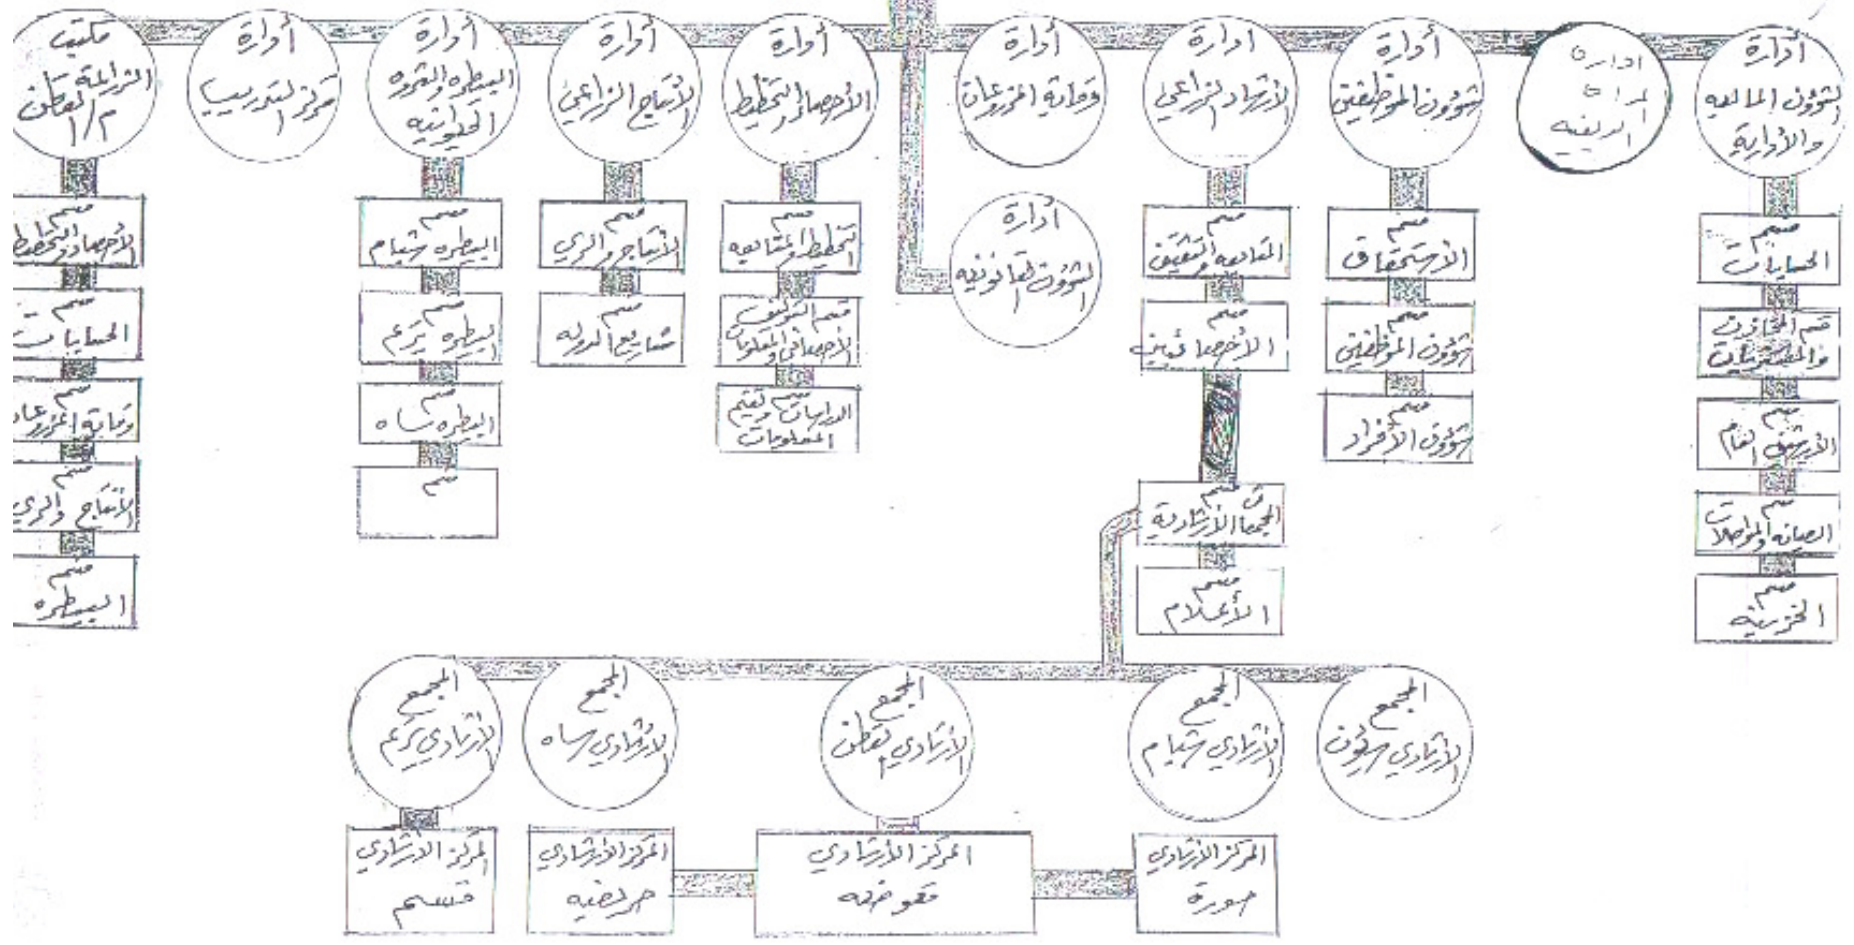 أدارة
لشؤون الماليه
والأدارية
قسم
الحسابات
قسم المخازن
والمشتريات
قسم
الأرشيف العام
قسم
الصيانه والمواصلات
قسم
الخزينه
ادارة
المراة
الريفيه
أدارة
شؤون الموظفين
قسم
الأستحقاق
قسم
شؤون الموظفين
قسم
شؤون الأفراد
ادارة
الأرشاد الزراعي
قسم
المتابعه والتقييم
قسم
الأخصائيين
قسم
المجمعات الأرشادية
قسم
الأعلام
أدارة
وقاية المزروعات
أدارة
الشؤون القانونيه
أدارة
الأحصاء والتخطيط
قسم
التخطيط والمتابعه
قسم التوثيق
الأحصائي والمعلومات
قسم
الدراسات وتقييم
المعلومات
أدارة
الأنتاج الزراعي
قسم
الأنتاج والري
قسم
مشاريع الدوله
أدارة
البيطره والثروه
الحيوانيه
قسم
البيطره شبام
قسم
البيطره تريم
قسم
البيطره ساه
قسم
أدارة
مركز التدريب
مكتب
الزراعة
القطن
١/٢
قسم
الأحصاء والتخطيط
قسم
الحسابات
قسم
وقاية المزروعات
قسم
الأنتاج والري
قسم
البيطره
المجمع
الأرشادي سيئون
المجمع
الأرشادي شبام
المجمع
الأرشادي القطن
المجمع
الأرشادي ساه
المجمع
الأرشادي تريم
المركز الأرشادي
حورة
المركز الأرشادي
المركز الأرشادي
المركز الأرشادي
قسم